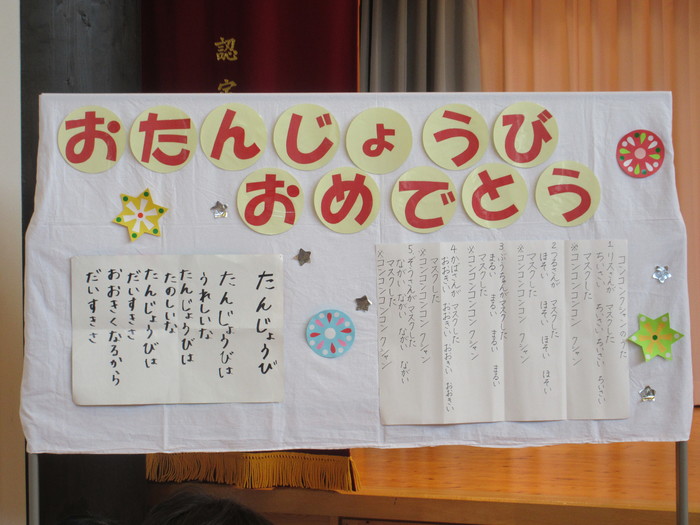 認定
おたんじょうび
おめでとう
コンコンクシャンのうた
1.リスさんが マスクした
ちいさい ちいさい ちいさい ちいさい
マスクした
※コンコンコンコン クシャン
2.つるさんが マスクした
ほそい ほそい ほそい ほそい
マスクした
※コンコンコンコン クシャン
3.ぶうちゃんがマスクした
まるい まるい まるい まるい
マスクした
※コンコンコンコン クシャン
4.かばさんが マスクした
おおきい おおきい おおきい おおきい
マスクした
※コンコンコンコン クシャン
5.ぞうさんが マスクした
ながい ながい ながい ながい
マスクした
※コンコンコンコン クシャン
たんじょうび
たんじょうびは
うれしいな
たんじょうびは
たのしいな
たんじょうびは
だいすきさ
おおきくなるから
だいすきさ